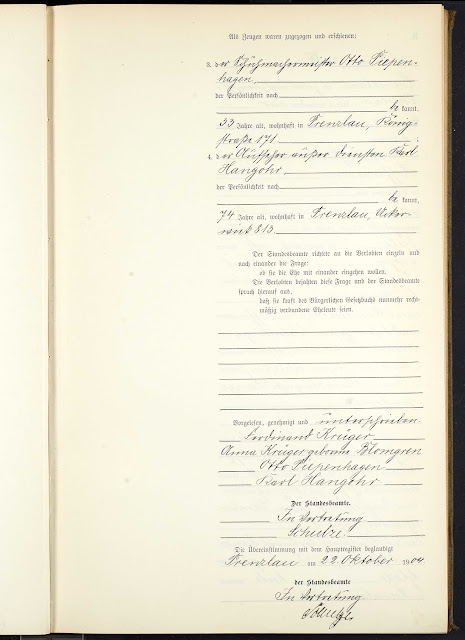 Als Zeugen waren zugezogen und erschienen:
3. der Schuhmachermeister Otto Piepen-
hagen,
der Persönlichkeit nach
be kannt,
33 Jahre alt, wohnhaft in Prenzlau, König-
straße 171
4. der Aufseher außer Diensten Karl
Hangohr,
der Persönlichkeit nach
be kannt,
74 Jahre alt, wohnhaft in Prenzlau, Ucker-
wiek 813.
Der Standesbeamte richtete an die Verlobten einzeln und
nach einander die Frage:
ob sie die Ehe mit einander eingehen wollen.
Die Verlobten bejahten diese Frage und der Standesbeamte
sprach hierauf aus,
daß sie kraft des Bürgerlichen Gesetzbuchs nunmehr recht-
mäßig verbundene Eheleute seien.
Vorgelesen, genehmigt und unterschrieben
Ferdinand Krüger
Anna Krüger geborene Blomgren
Otto Piepenhagen
Karl Hangohr
Der Standesbeamte.
In Vertretung
Schulze
Die Übereinstimmung mit dem Hauptregister beglaubigt
Prenzlau am 22. Oktober 1904.
der Standesbeamte
In Vertretung
Schulze